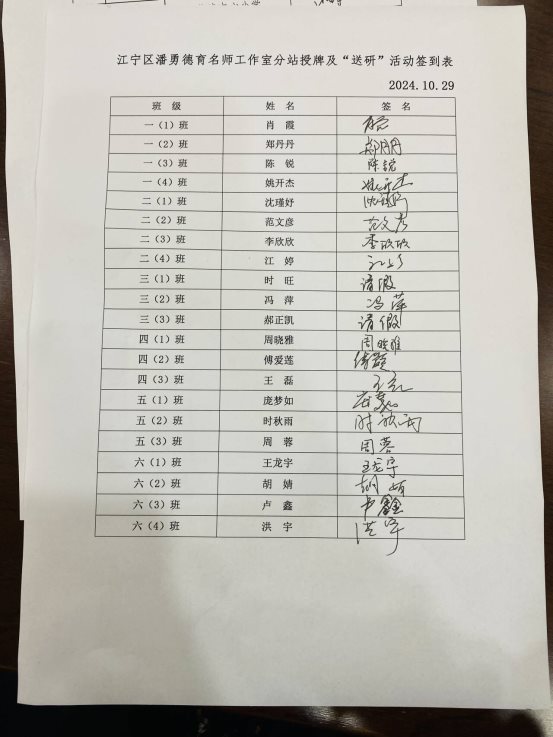 江宁区潘勇德育名师工作室分站授牌及“送研”活动签到表
2024.10.29
班 级 姓 名 签 名
一（1）班 肖 霞
一（2）班 郑丹丹 郑丹丹
一（3）班 陈 锐 陈锐
一（4）班 姚开杰 姚开杰
二（1）班 沈瑾妤
二（2）班 范文彦 范文彦
二（3）班 李欣欣 李欣欣
二（4）班 江 婷
三（1）班 时 旺 请假
三（2）班 冯 萍 冯萍
三（3）班 郝正凯 请假
四（1）班 周晓雅 周晓雅
四（2）班 傅爱莲
四（3）班 王 磊 王磊
五（1）班 庞梦如
五（2）班 时秋雨 时秋雨
五（3）班 周 蓉 周蓉
六（1）班 王龙宇 王龙宇
六（2）班 胡 婧 胡婧
六（3）班 卢 鑫 卢鑫
六（4）班 洪 宇 洪宇